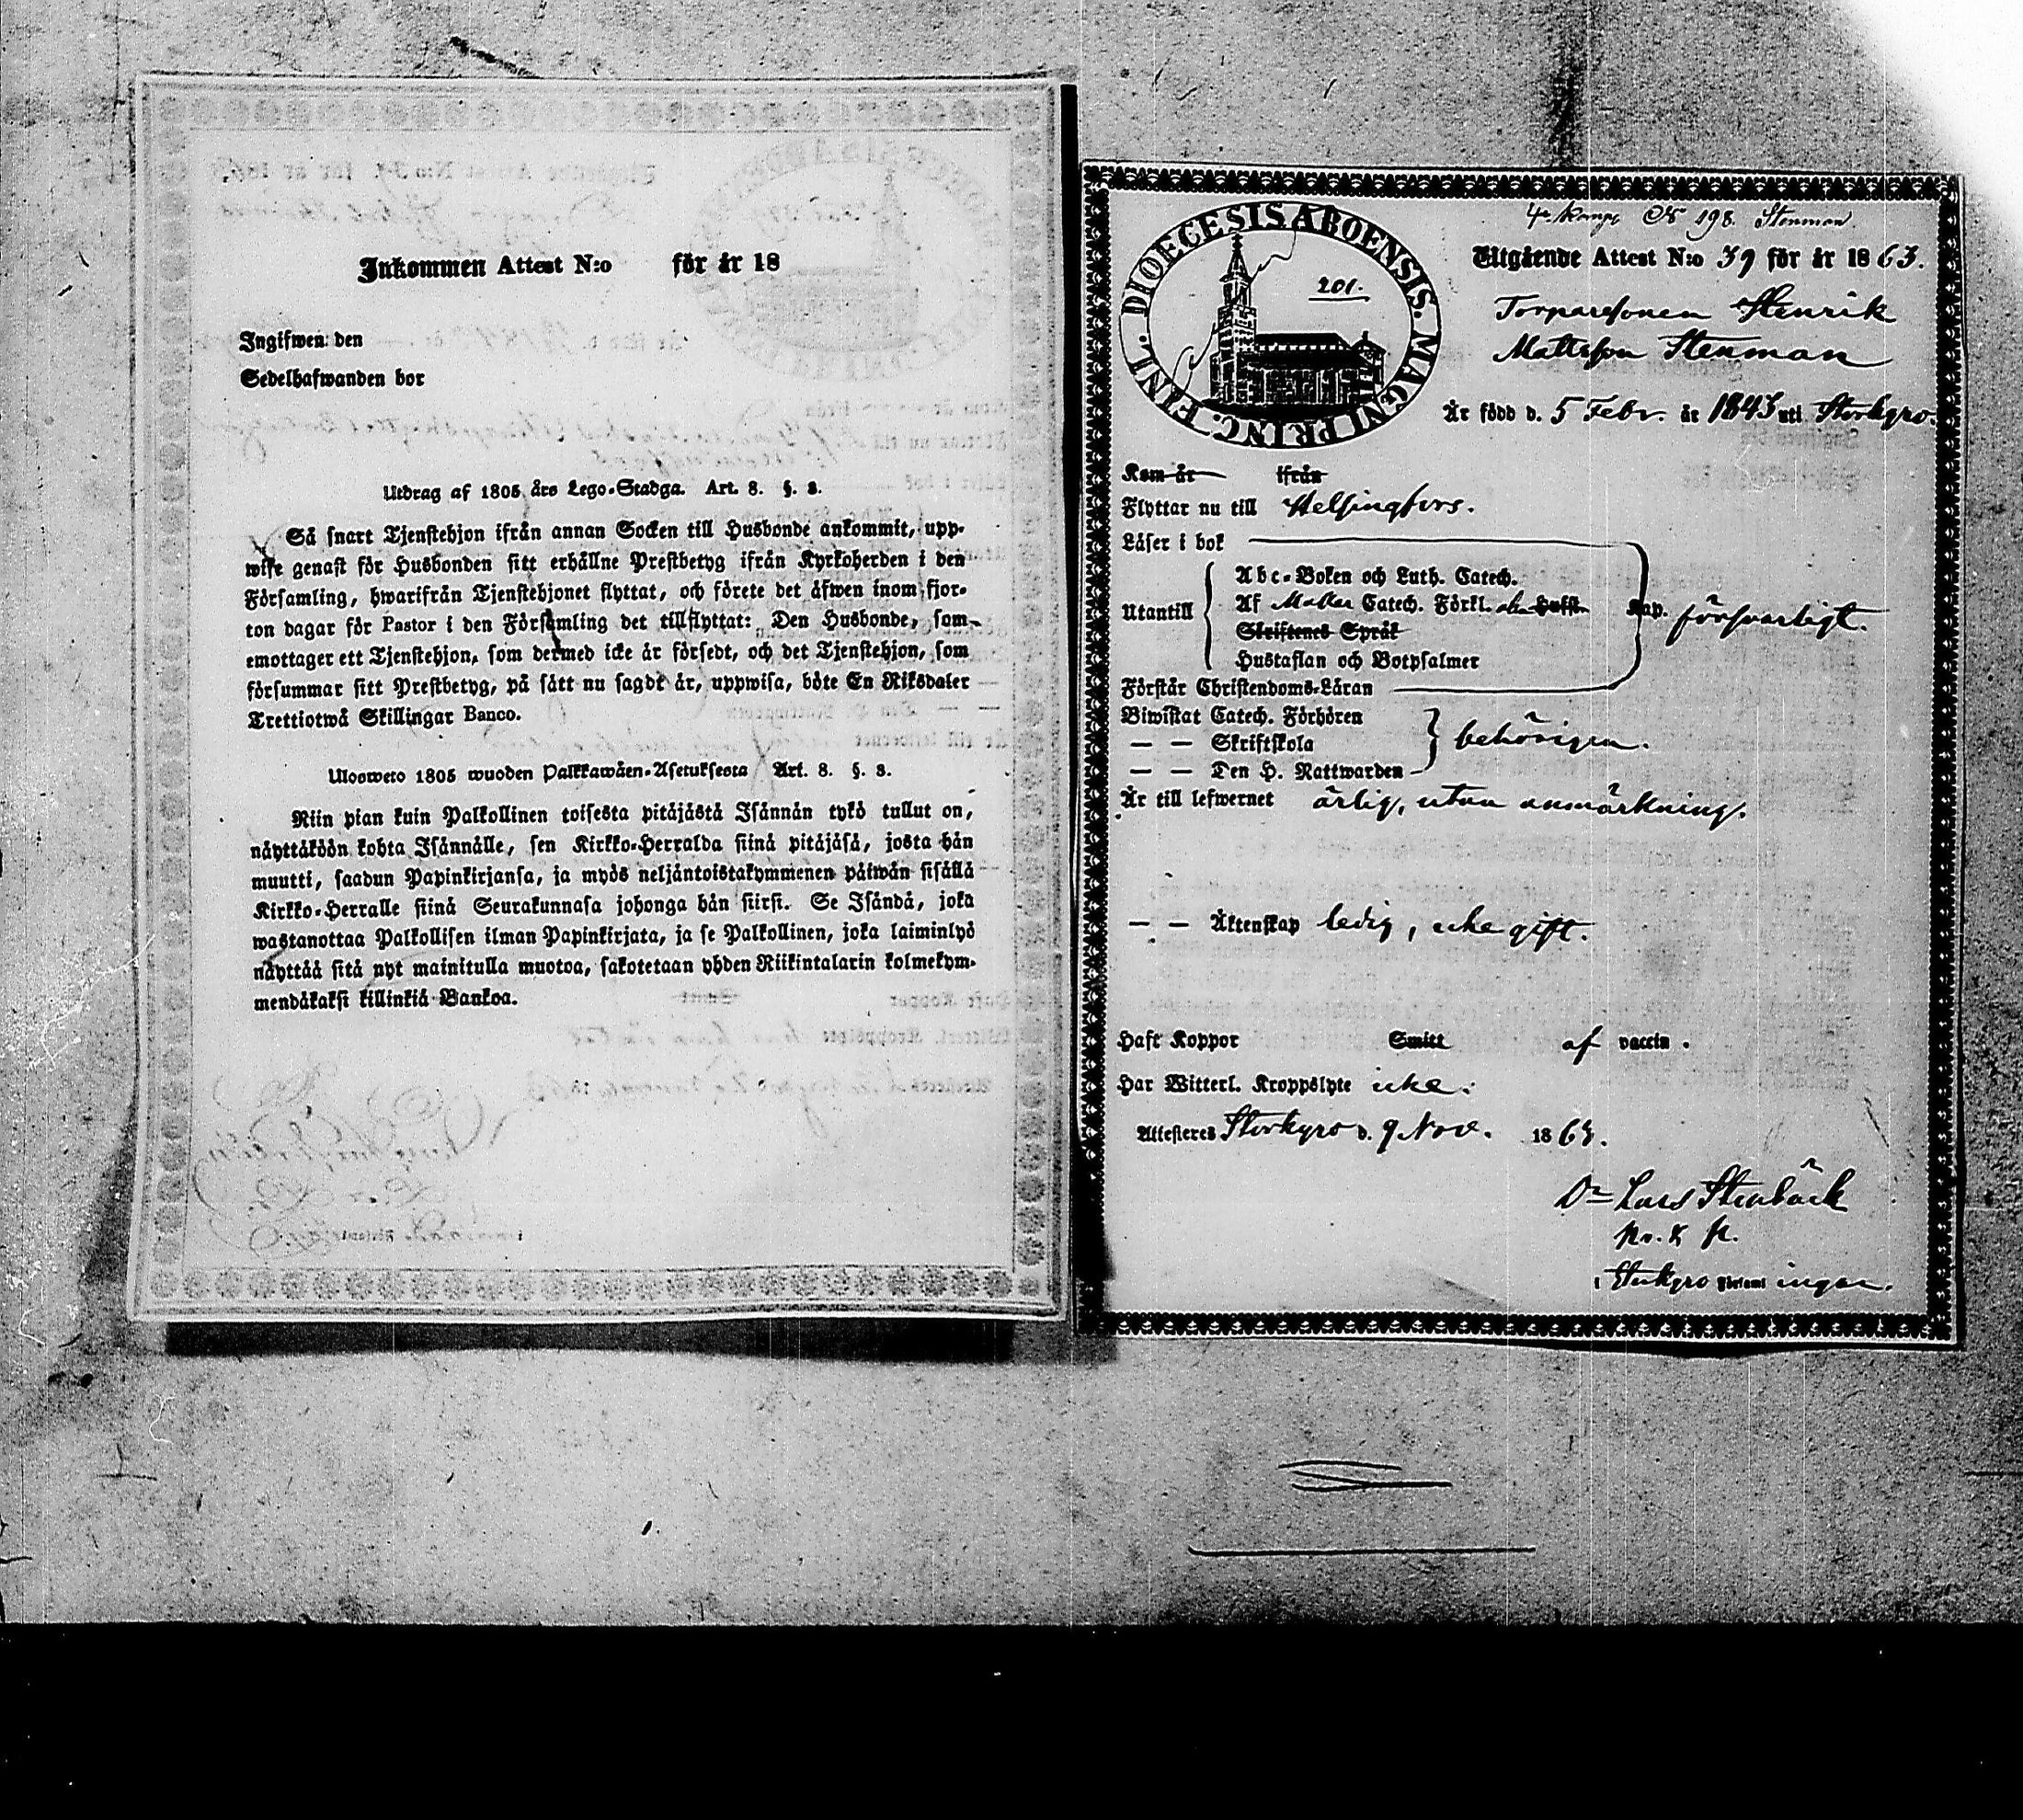 Inkommen Attest N:o för år 18
Ingifwen den
Sedelhafwanden bor
Utdrag af 1805 års Lego-Stadga. Art. 8. §. 8.
Så snart Tjenstehjon ifrån annan Socken till Husbonde ankommit, upp-
wise genast för Husbonden sitt erhållne Prestbetyg ifrån Kyrkoherden i den
Församling, hwarifrån Tjenstehjonet flyttat, och förete det äfwen inom fjor-
ton dagar för Pastor i den Församling det tillflyttat: Den Husbonde, som
emottager ett Tjenstehjon, som dermed icke är försedt, och det Tjenstehjon, som
försummar sitt Prestbetyg, på sätt nu sagdt är, uppwisa, böte En Riksdaler
Trettiotwå Skillingar Banco.
Uloswetо 1805 wuoden Palkkawäen-Asetuksesta Art. 8. §. 8.
Niin pian kuin Palkollinen toisesta pitäjästä Isännän tykö tullut on,
näyttäköön kohta Isännälle, sen Kirkko-Herralda siinä pitäjäsä, josta hän
muutti, saadun Papinkirjansa, ja myös neljäntoistakymmenen päiwän sisällä
Kirkko-Herralle siinä Seurakunnasa johonga hän siirsi. Se Isändä, joka
wastanottaa Palkollisen ilman Papinkirjata, ja se Palkollinen, joka laiminlyö
näyttää sitä nyt mainitulla muotoa, sakotetaan yhden Riikintalarin kolmekym-
mendäkaksi killinkiä Bankoa.
DIOECESIS ABOENSIS. MAGNI PRINC. FINL.
201.
198. Stenman
Utgående Attest N:o 39 för år 1863.
Torparesonen Henrik
Mattsson Stenman
Är född d. 5 Febr. år 1843 uti Storkyro.
Kom år ifrån
Flyttar nu till Helsingfors.
Läser i bok
Utantill
Abc-Boken och Luth. Catech.
Af Catech. Förkl.
Skriftenes Språk
Hustaflan och Botpsalmer
Kap. försvarligt.
Förstår Christendoms-Läran
Biwistat Catech. Förhören
— — Skriftskola
— — Den H. Nattwarden
behörigen.
Är till lefwernet ärlig, utan anmärkning.
— — Äktenskap ledig, icke gift.
Haft Koppor Smitt af vaccin.
Har Witterl. Kroppslyte icke.
Attesteras Storkyro d. 9 Nov. 1863.
Dr Lars Stenbäck
i Storkyro Församl ingar.